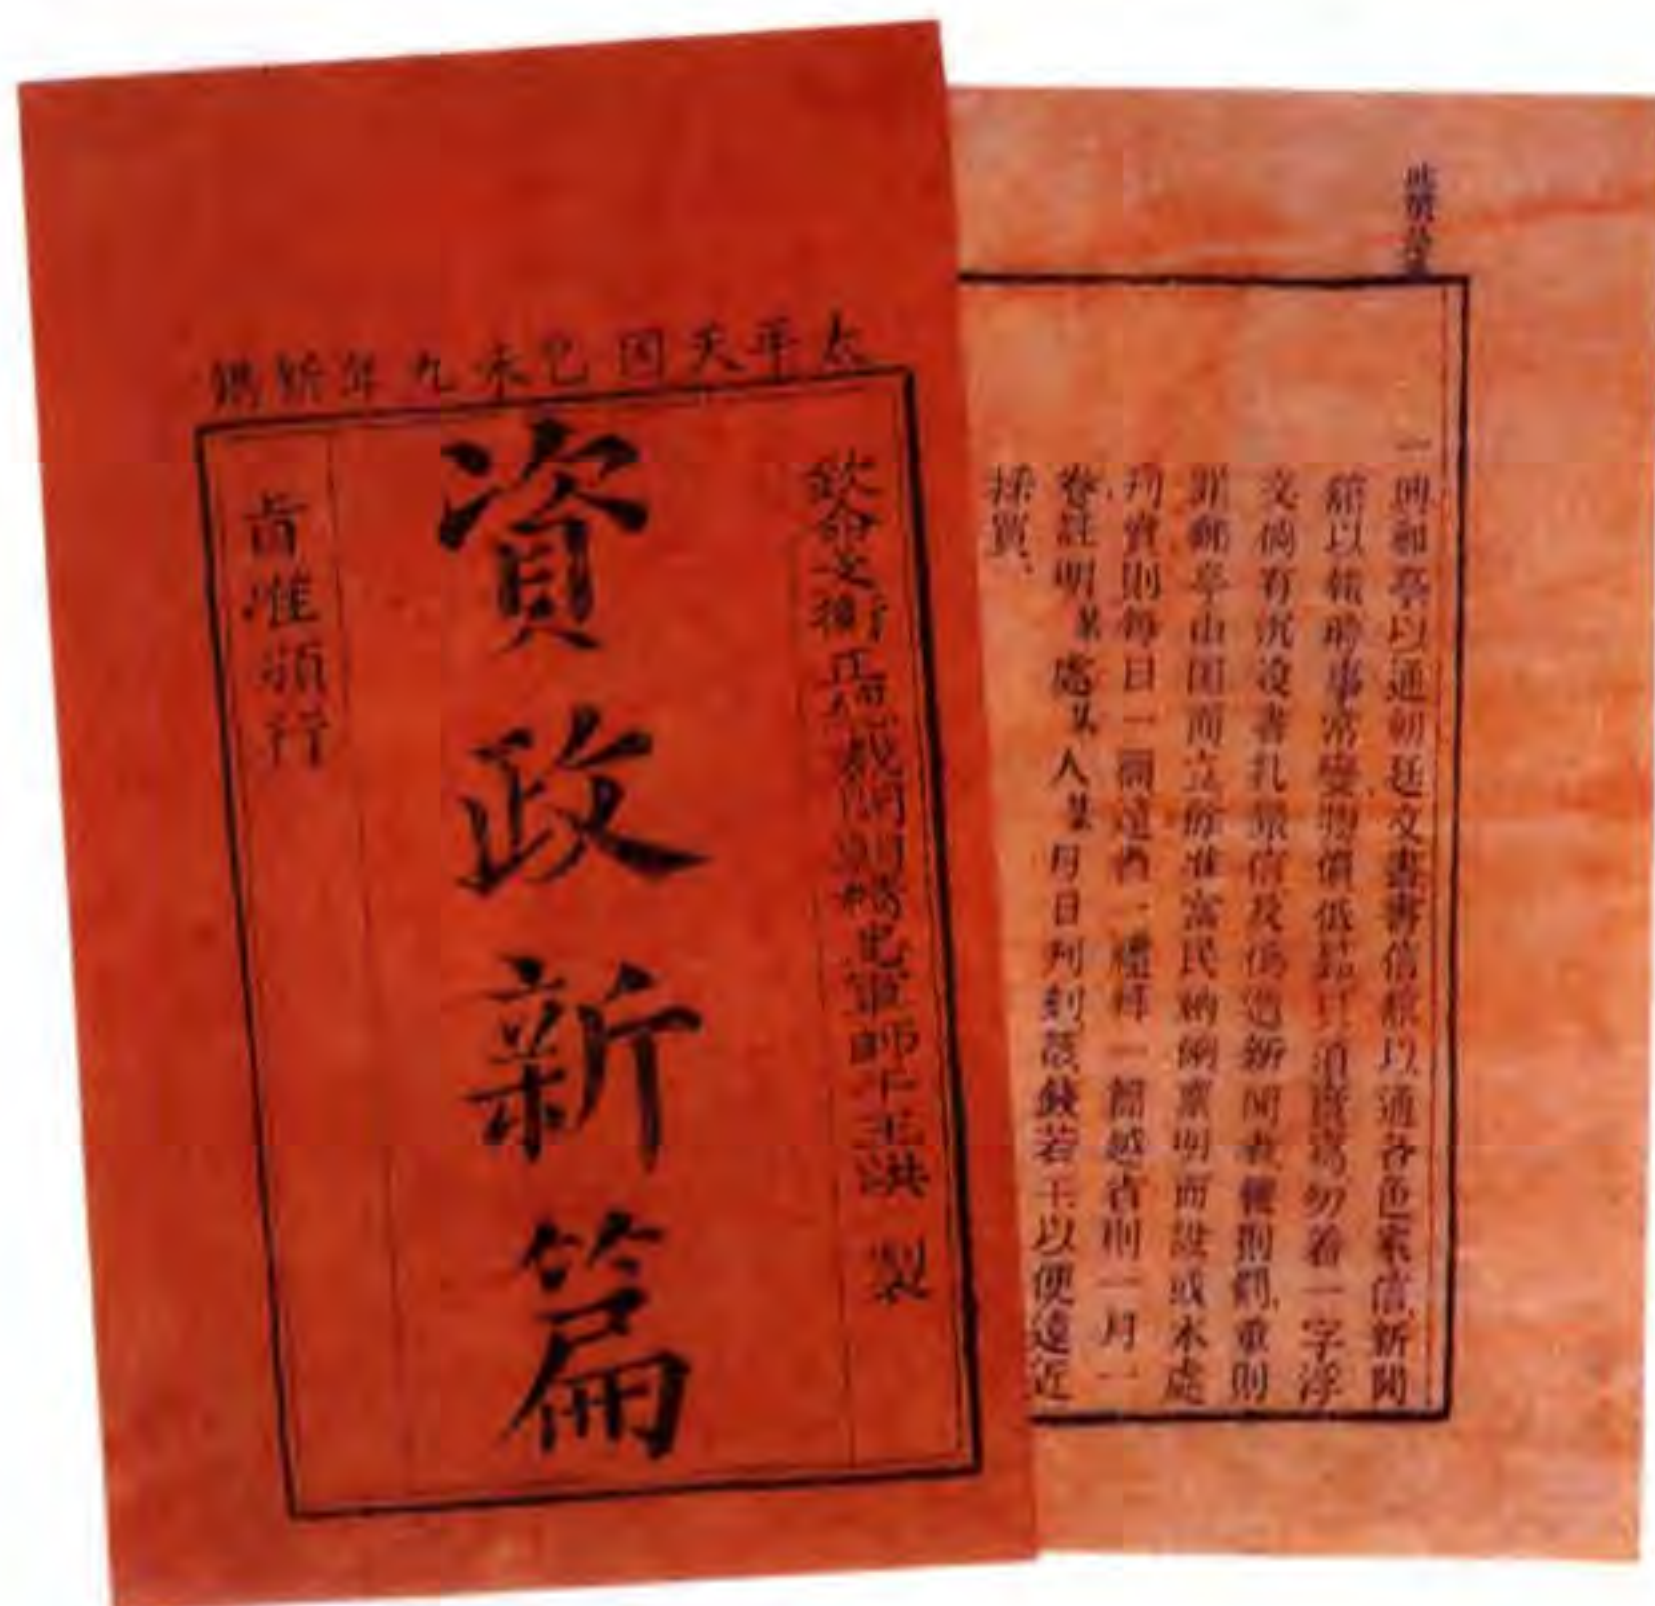 太平天囯己未九年新鐫
欽命文衡正總裁開朝精忠軍師干王洪 製
資政新篇
旨准頒行
一興郵亭以通朝廷文書書信館以通各色家信、新聞
館以報時事常變物價低昂只須實寫勿着一字浮
文倘有沉沒書札銀信及偽造新聞者輕則罰、重則
罪郵亭由囯而立餘准富民納餉禀明而設或本處
刋賣則每日一篇遠者一禮拜一篇越省則一月一
卷註明某處某人某月日刋刻該錢若干以便遠近
採買、